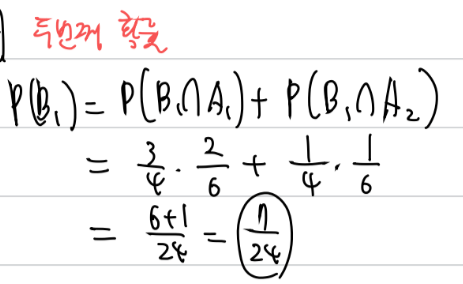 두번째 확률
P(B₁) = P(B₁∩A₁) + P(B₁∩A₂)
= 3/4 · 2/6 + 1/4 · 1/6
= 6+1/24 = 7/24